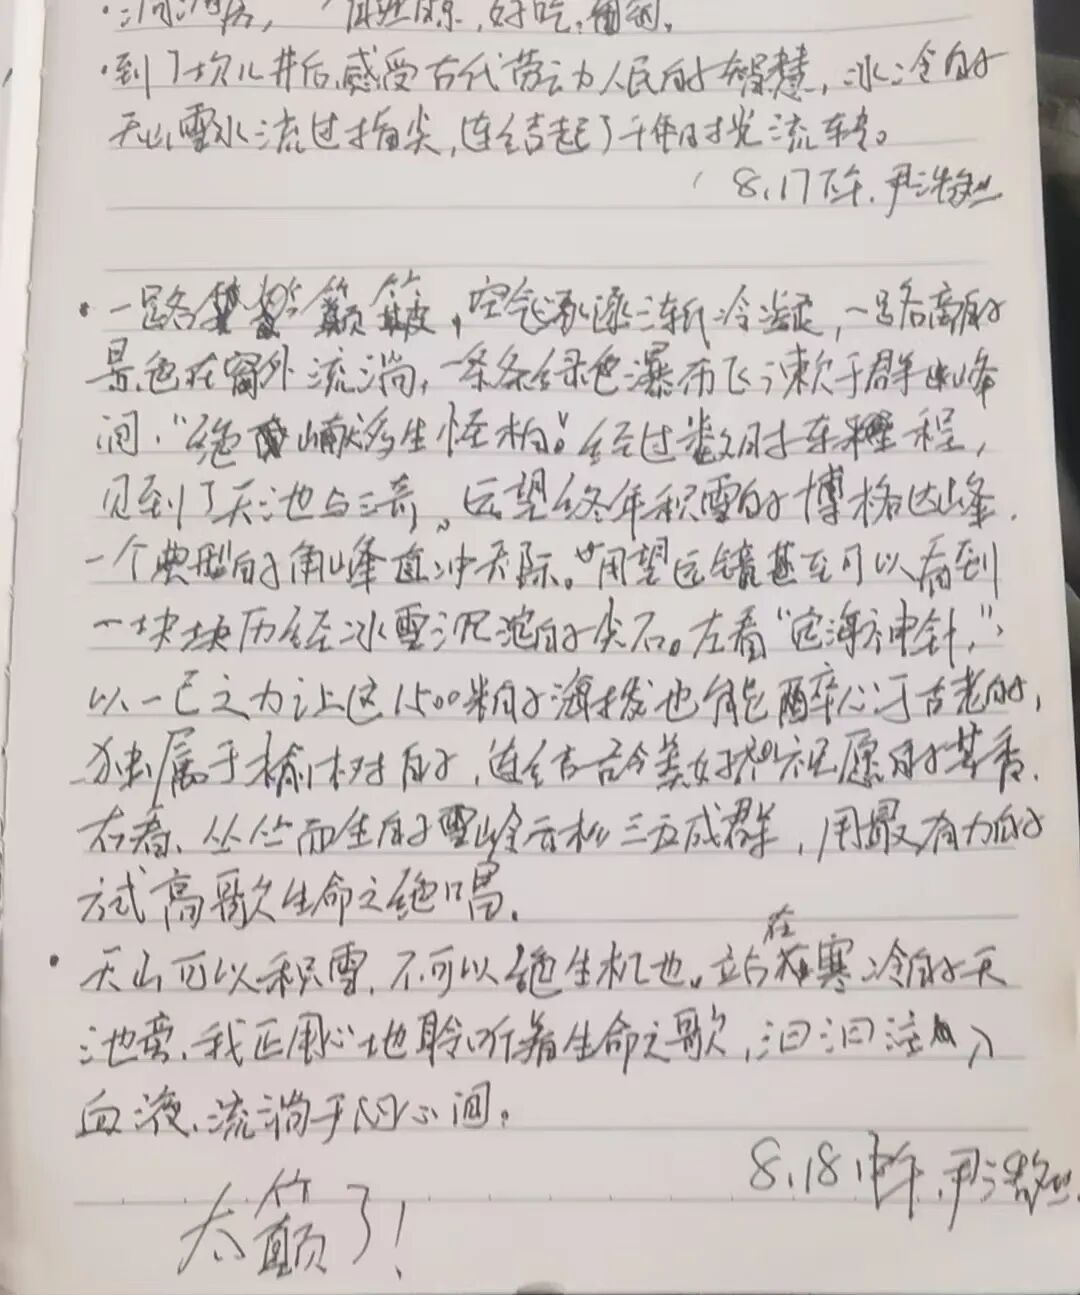 好吃,葡萄。
·到了坎儿井后,感受古代劳动人民的智慧,冰冷的
天山雪水流过指尖,连结起了千年时光流转。
8.17下午.尹
·一路颠簸,空气逐渐冷凝,一路高的
景色在窗外流淌,一条条绿色瀑布飞漱于群山峰
间,“绝巘多生怪柏”。经过数小时车程,
见到了天池与三奇。远望终年积雪的博格达峰,
一个典型的角峰直冲天际。用望远镜甚至可以看到
一块块历经冰雪沉淀的尖石。左看“定海神针”,
以一己之力让这1500米的海拔也能醉心于古老的,
独属于榆树的,连结着美好祝愿的芬香.
右看、丛丛而生的雪岭云杉三五成群,用最有力的
方式高歌生命之绝唱.
·天山可以积雪,不可以绝生机也。立在寒冷的天
池旁,我正用心地聆听着生命之歌,汩汩注入
血液,流淌于内心间。
8.18中午.尹
太颠了!